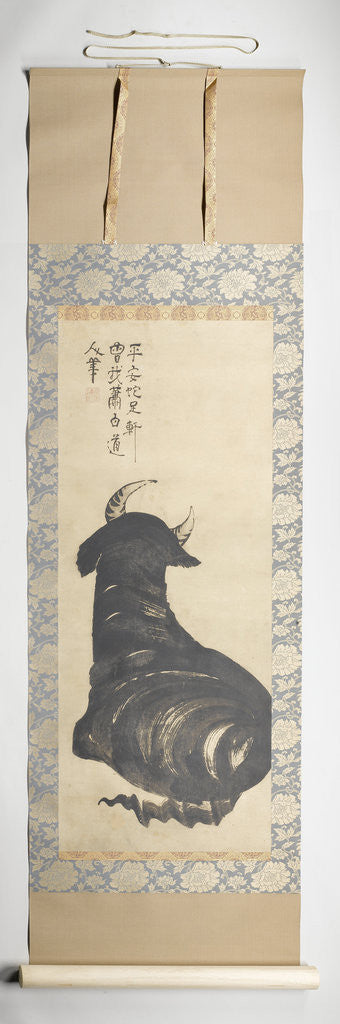 平安蛇足軒
曽我蕭白道
人筆